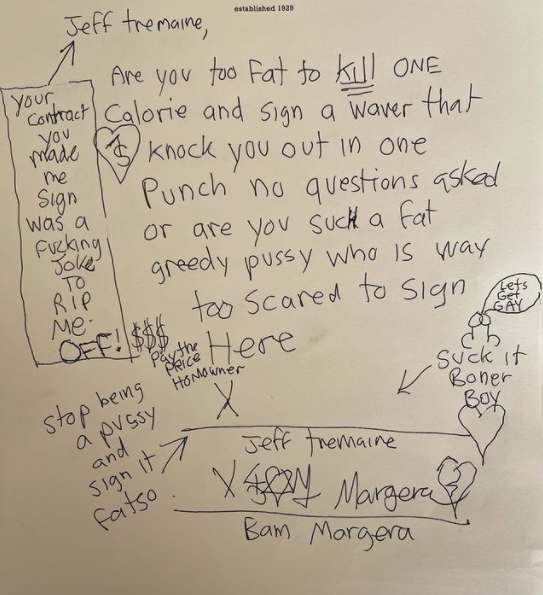 established 1929
Jeff tremaine,
Are you too Fat to kill ONE
Calorie and sign a waver that
knock you out in one
Punch no questions asked
or are you such a fat
greedy pussy who is way
too scared to sign
Here
your
contract
you
made
me
sign
was a
Fucking
Joke
TO
RIP
ME.
OFF!
$
$$$
Pay the
Price
HOMOWNER
Lets
Get
GAY
Suck it
Boner
Boy
stop being
a pussy
and
sign it
Fatso.
X
Jeff tremaine
X
Margera
Bam Margera